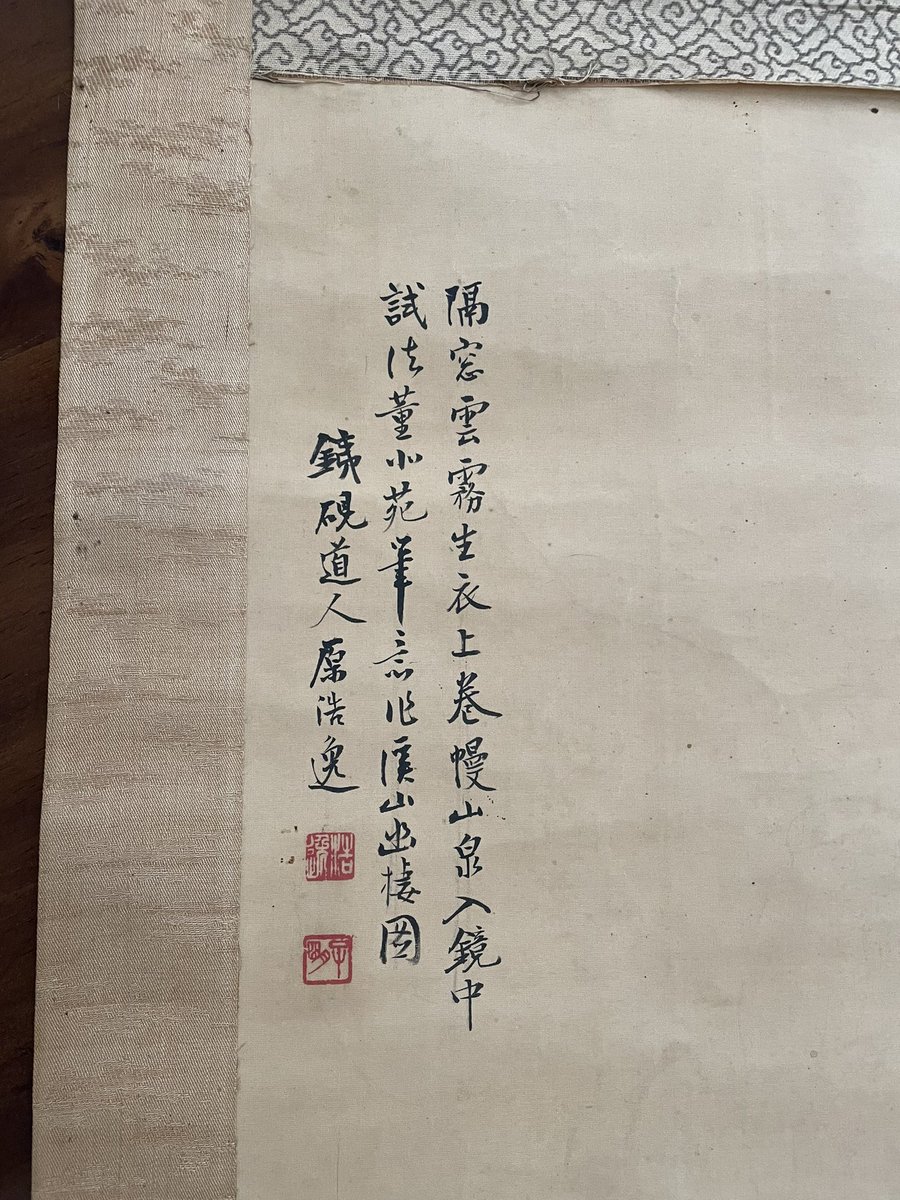 隔窓雲霧生衣上卷幔山泉入鏡中
試法董北苑筆意作溪山幽棲図
銕硯道人原浩逸
浩逸